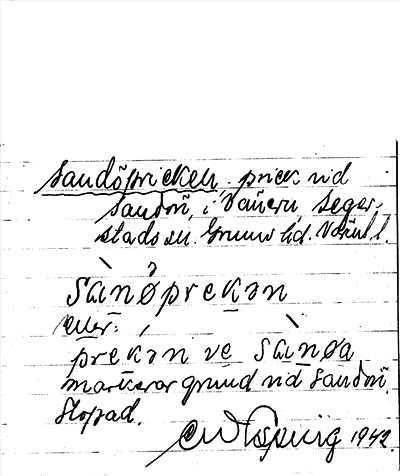 Sandöpricken, prick vid
Sandön, i Vänern, Seger-
stads sn. Grums hd. Värml.
sànǿprekən
eller:
prekən ve sànøa
markerar grund vid Sandön.
Slopad.
1942.